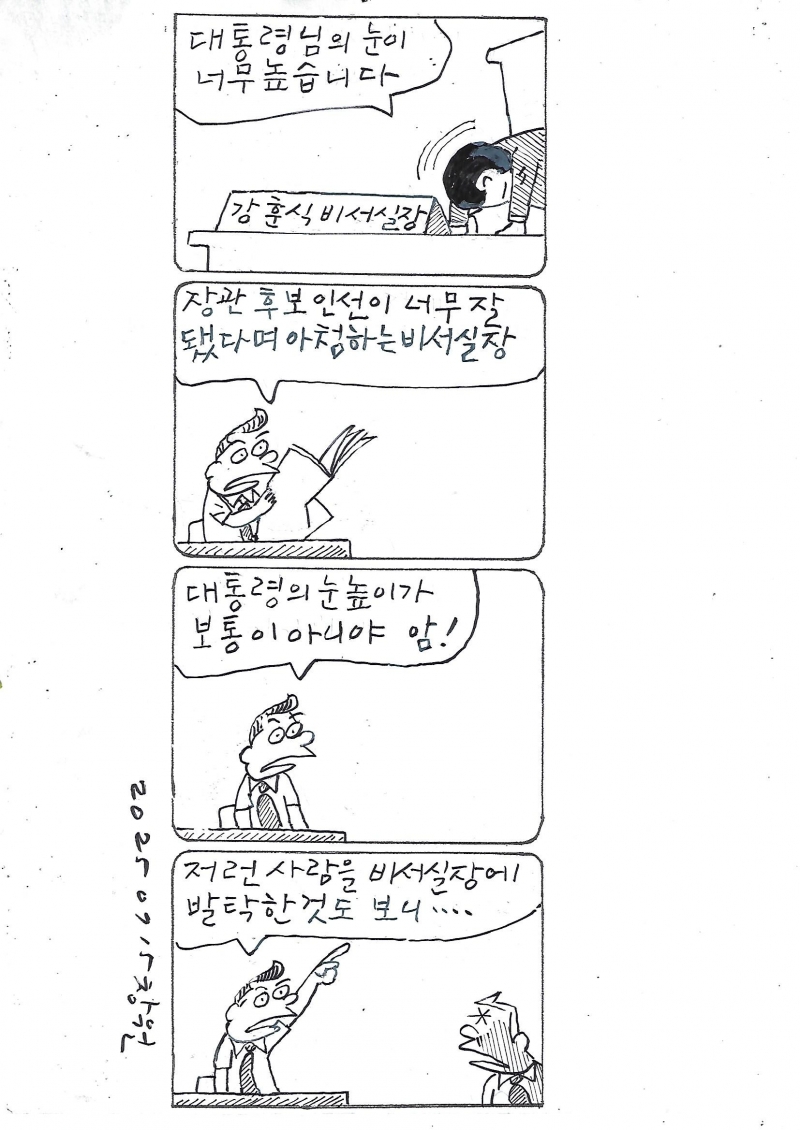 대통령님의 눈이
너무 높습니다
강훈식 비서실장
장관 후보 인선이 너무 잘
됐다며 아첨하는 비서실장
대통령의 눈높이가
보통이 아니야 암!
저런 사람을 비서실장에
발탁한 것도 보니....